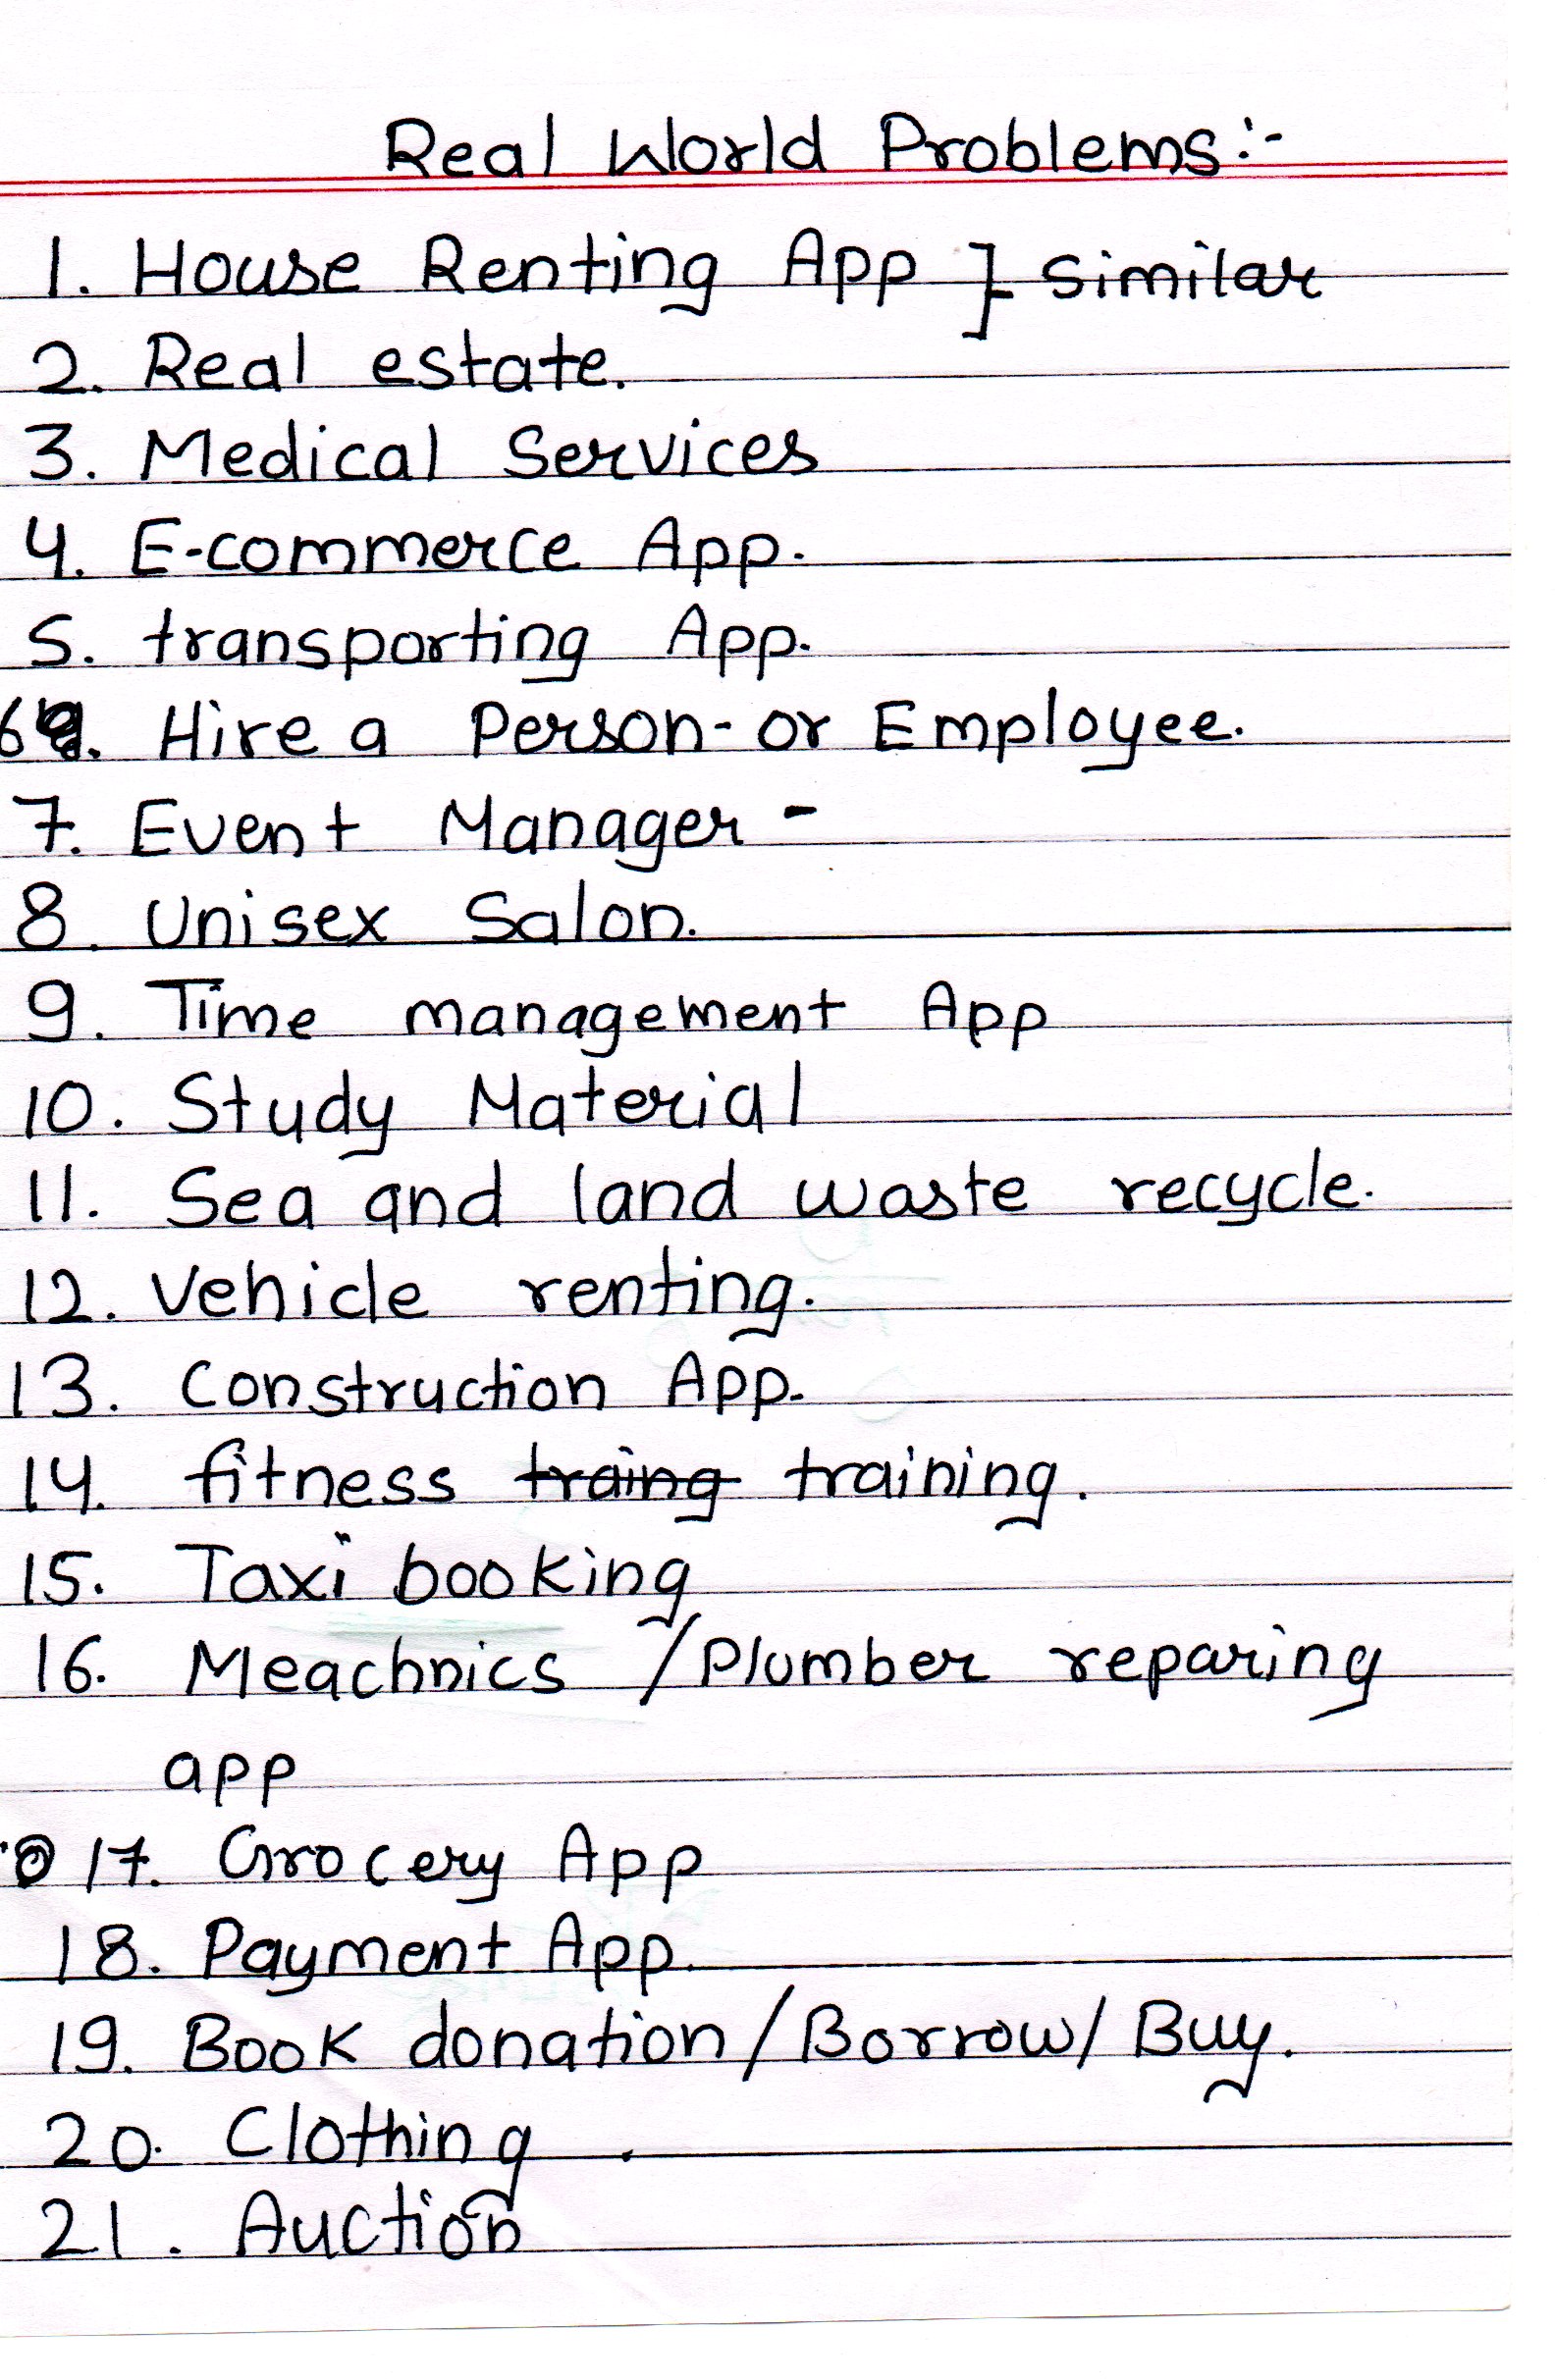 Real World Problems:-
1. House Renting App ] Similar
2. Real estate.
3. Medical Services
4. E-commerce App.
5. transporting App.
6. Hire a Person- or Employee.
7. Event Manager -
8. Unisex Salon.
9. Time management App
10. Study Material
11. Sea and land waste recycle.
12. Vehicle renting.
13. Construction App.
14. fitness traing training.
15. Taxi booking
16. Meachnics / Plumber reparing
app
17. Grocery App
18. Payment App.
19. Book donation/Borrow/Buy.
20. Clothing .
21. Auction